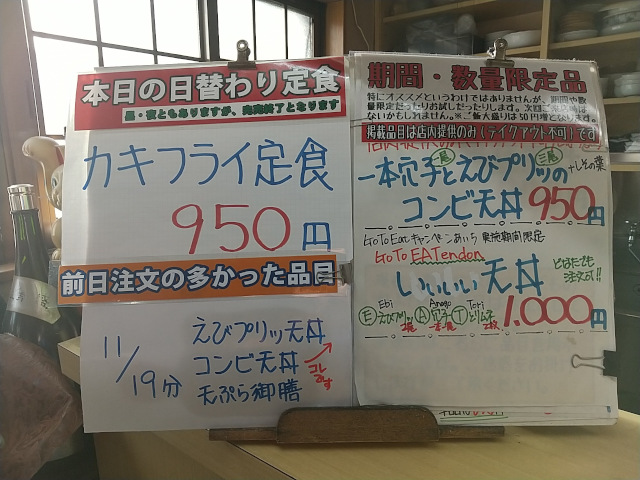 本日の日替わり定食
昼・夜ともありますが、完売終了となります
カキフライ定食
950円
前日注文の多かった品目
11/19分
えびプリッツ天丼
コンビ天丼
天ぷら御膳
コレです
期間・数量限定品
特にオススメというわけではありませんが、期間や数
量限定だったりお試しだったりします。次回ご来店時は
ないかもしれません。※ご飯大盛りは50円増となります。
掲載品目は店内提供のみ(テイクアウト不可)です
一本穴子とえびプリッツの
一尾
三尾
+しその葉
コンビ天丼 950円
GoToEatキャンペーンあいち 実施期間限定
GoTo EATendon
いいいい天丼
どなたでも
注文可!!
1.000円
Ebi
Anago
Tori
Eえびプリッツ A穴子 Tとりム子
一本
2枚